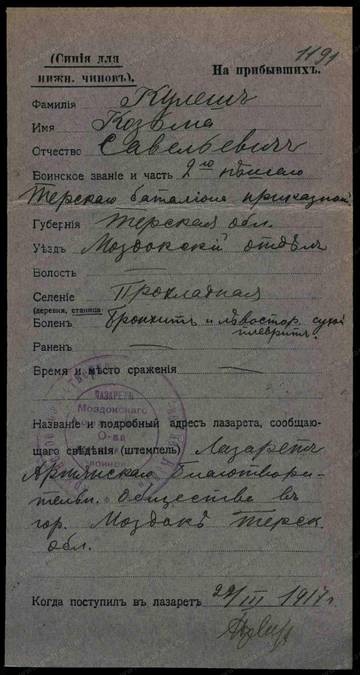 (Синія для
нижн. чиновъ).
На прибывшихъ.
1191
Фамилія Кулешъ
Имя Козьма
Отчество Савельевичъ
Воинское званіе и часть 2го пѣшаго
Терскаго баталіона приказной
Губернія Терская обл.
Уѣздъ Моздокскій отдѣлъ
Волость —
Селеніе Прохладная
(деревня, станица)
Боленъ Бронхитъ и лѣвостор. сухой
плевритъ.
Раненъ —
Время и мѣсто сраженія —
ЛАЗАРЕТЪ
Моздокскаго
О-ва
Названіе и подробный адресъ лазарета, сообщаю-
щаго свѣдѣнія (штемпель) Лазаретъ
Армянскаго Благотвори-
тельн. Общества въ
гор. Моздокѣ Терск.
обл.
Когда поступилъ въ лазаретъ 22/III 1917 г.